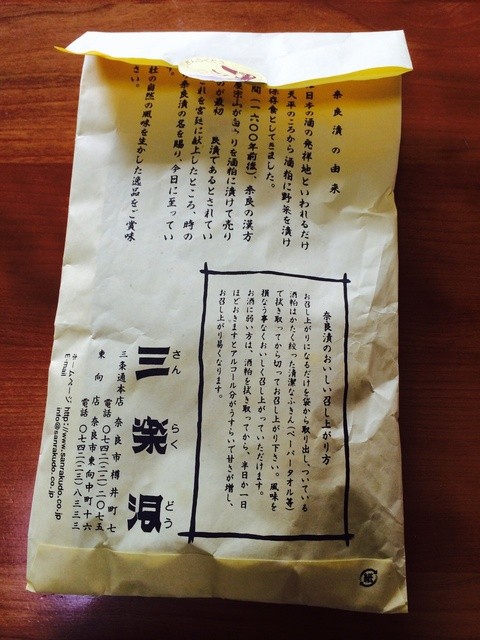 奈良漬の由来
日本の酒の発祥地といわれるだけ
天平のころから酒粕に野菜を漬け
保存食としてきました。
間(一六〇〇年前後)、奈良の漢方
りを酒粕に漬けて売り
が最切 良漬であるとされてい
これを宮廷に献上したところ、時の
奈良漬の名を賜り、今日に至ってい
。
社の自然の風味を生かした逸品をご賞味
奈良漬のおいしい召し上がり方
お召し上がりになるだけを袋から取り出し、ついている
酒粕はかたく絞った清潔なふきん(ペーパータオル等)
で拭き取ってから切ってお召し上がり下さい。風味を
損なう事なくおいしく召し上がっていただけます。
お酒に弱い方は、酒粕を拭き取ってから、半日か一日
ほどおきますとアルコール分がうすらいで甘さが増し、
お召し上がり易くなります。
三楽洞
さん らく どう
三条通本店 奈良市樽井町七
電話 〇七四二(二二)二〇七五
東向店 奈良市東向中町十六
電話 〇七四二(二三)八三三三
ホームページ http://www.sanrakudo.co.jp
E-mail info@sanrakudo.co.jp
紙